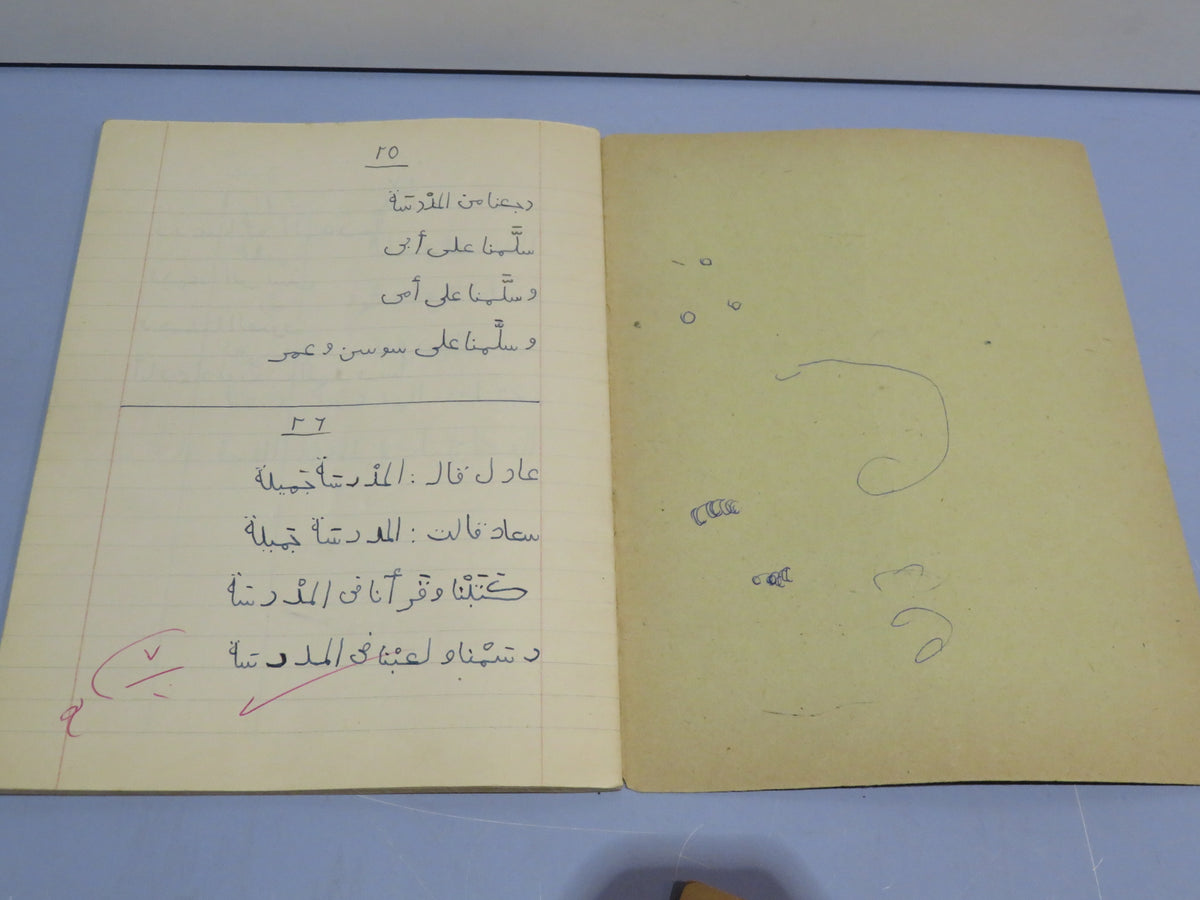 ٢٥
رجعنا من المدْرسة
سلَّمنا على أبى
و سلَّمنا على أمى
و سلَّمنا على سوسن و عمر
٢٦
عادل قال : المدْرسة جَميلة
سعاد قالت : المدرسة جَميلة
كَتَبْنا و قَرأنا فى المدْرسة
رسَمْنا و لعبْنا فى المدرسة
٧